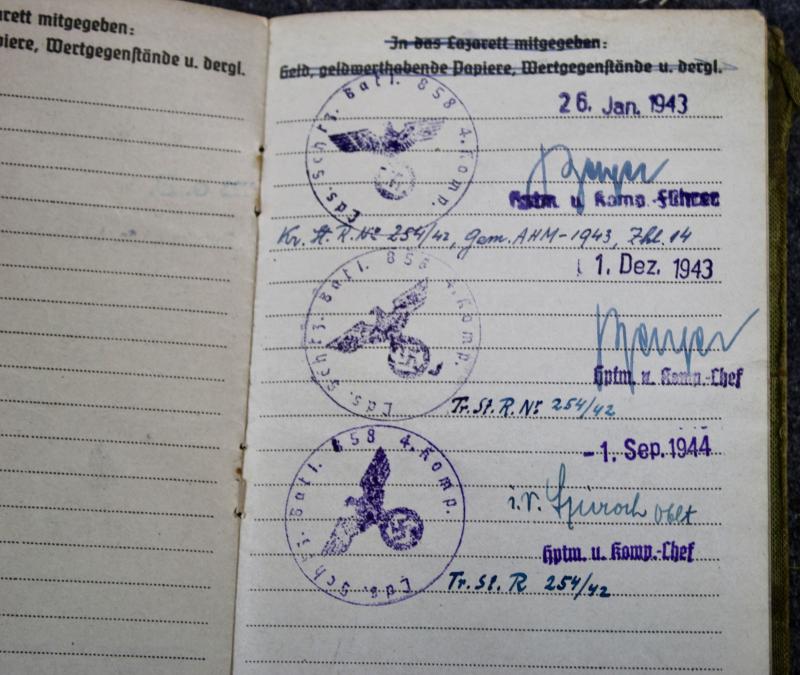 arett mitgegeben:
piere, Wertgegenstände u. dergl.
In das Lazarett mitgegeben:
Geld, geldwerthabende Papiere, Wertgegenstände u. dergl.
Lds. Schtz. Batl. 858 4. Komp.
26. Jan. 1943
Hptm. u. Komp. Führer
Kr. St. R. No 254/42, Gem. AHM-1943, Zhl. 14
Lds. Schtz. Batl. 858 4. Komp.
1. Dez. 1943
Hptm. u. Komp.-Chef
Tr. St. R. Nr 254/42
Lds. Schtz. Batl. 858 4. Komp.
-1. Sep. 1944
i.V. Oblt
Hptm. u. Komp.-Chef
Tr. St. R 254/42